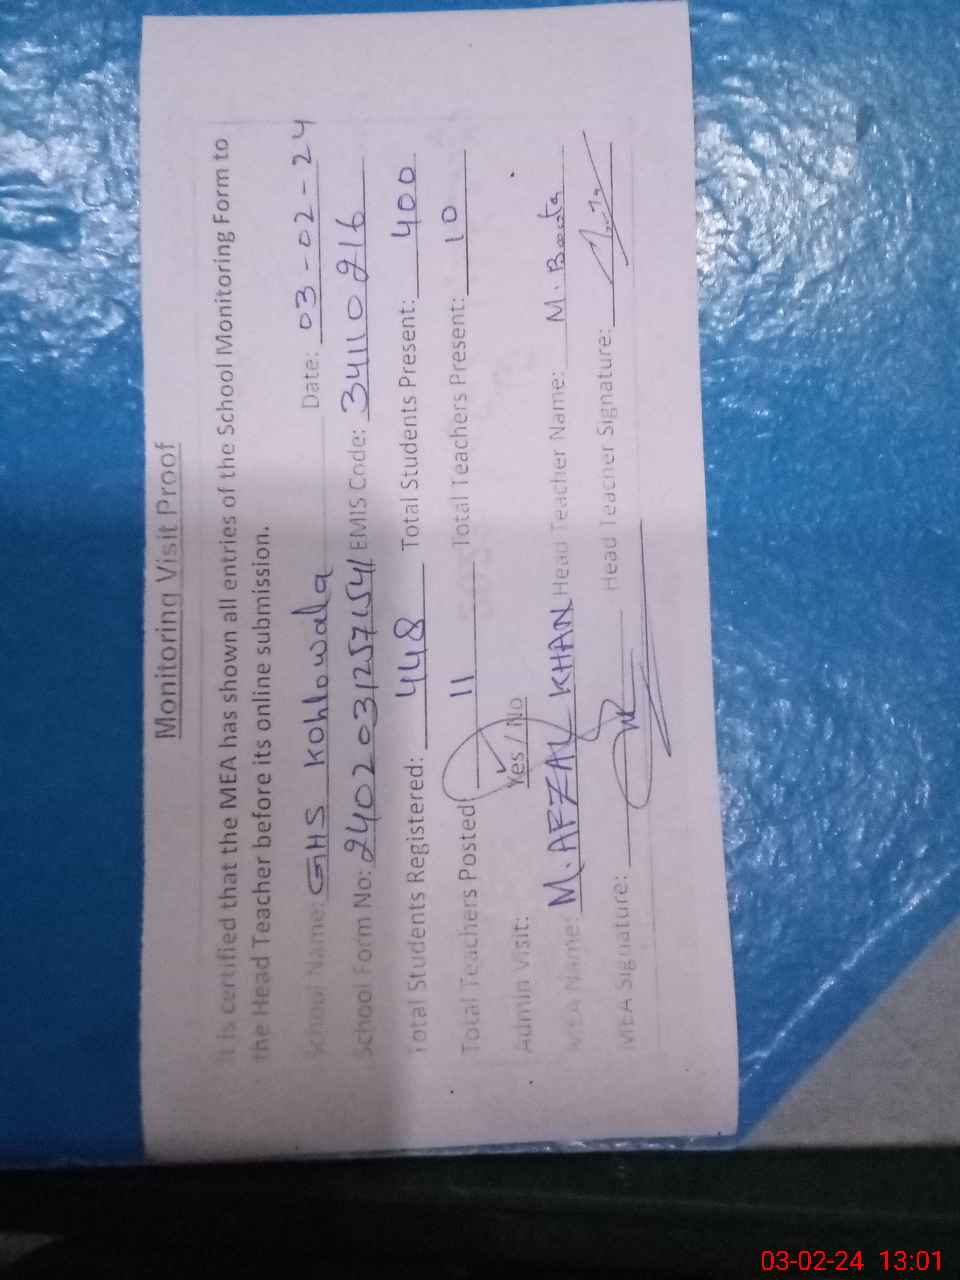 Monitoring Visit Proof
It is certified that the MEA has shown all entries of the School Monitoring Form to
the Head Teacher before its online submission.
School Name: GHS Kohlowala Date: 03-02-24
School Form No: 2402031257154 EMIS Code: 34110216
Total Students Registered: 448 Total Students Present: 400
Total Teachers Posted: 11 Total Teachers Present: 10
Admin Visit: Yes / No
MEA Name: M.AFZAL KHAN Head Teacher Name: M. Boota
MEA Signature: Head Teacher Signature:
03-02-24 13:01